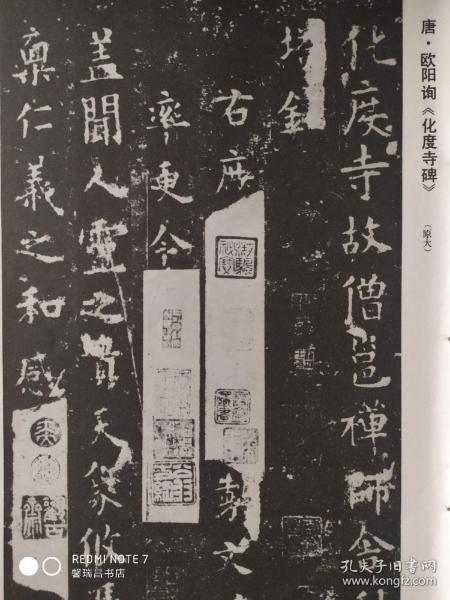 唐·欧阳询《化度寺碑》
（原大）
化度寺故僧邕禅師舍利
塔銘
右庶 製文
率更令
盖聞人靈之貴天象攸
稟仁義之和感
REDMI NOTE 7
馨瑞昌书店
孔夫子旧书网